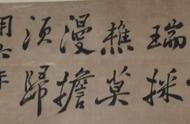 瑞採
樵莫
漫擔
須歸
六年